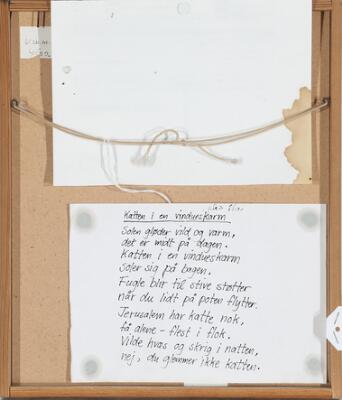 Katten i en vindueskarm
Solen gløder vild og varm,
det er midt på dagen.
Katten i en vindueskarm
Soler sig på bagen.
Fugle blir til stive støtter
når du lidt på poten flytter.
Jerusalem har katte nok,
få alene - flest i flok.
Vilde hvæs og skrig i natten,
nej, du glemmer ikke katten.